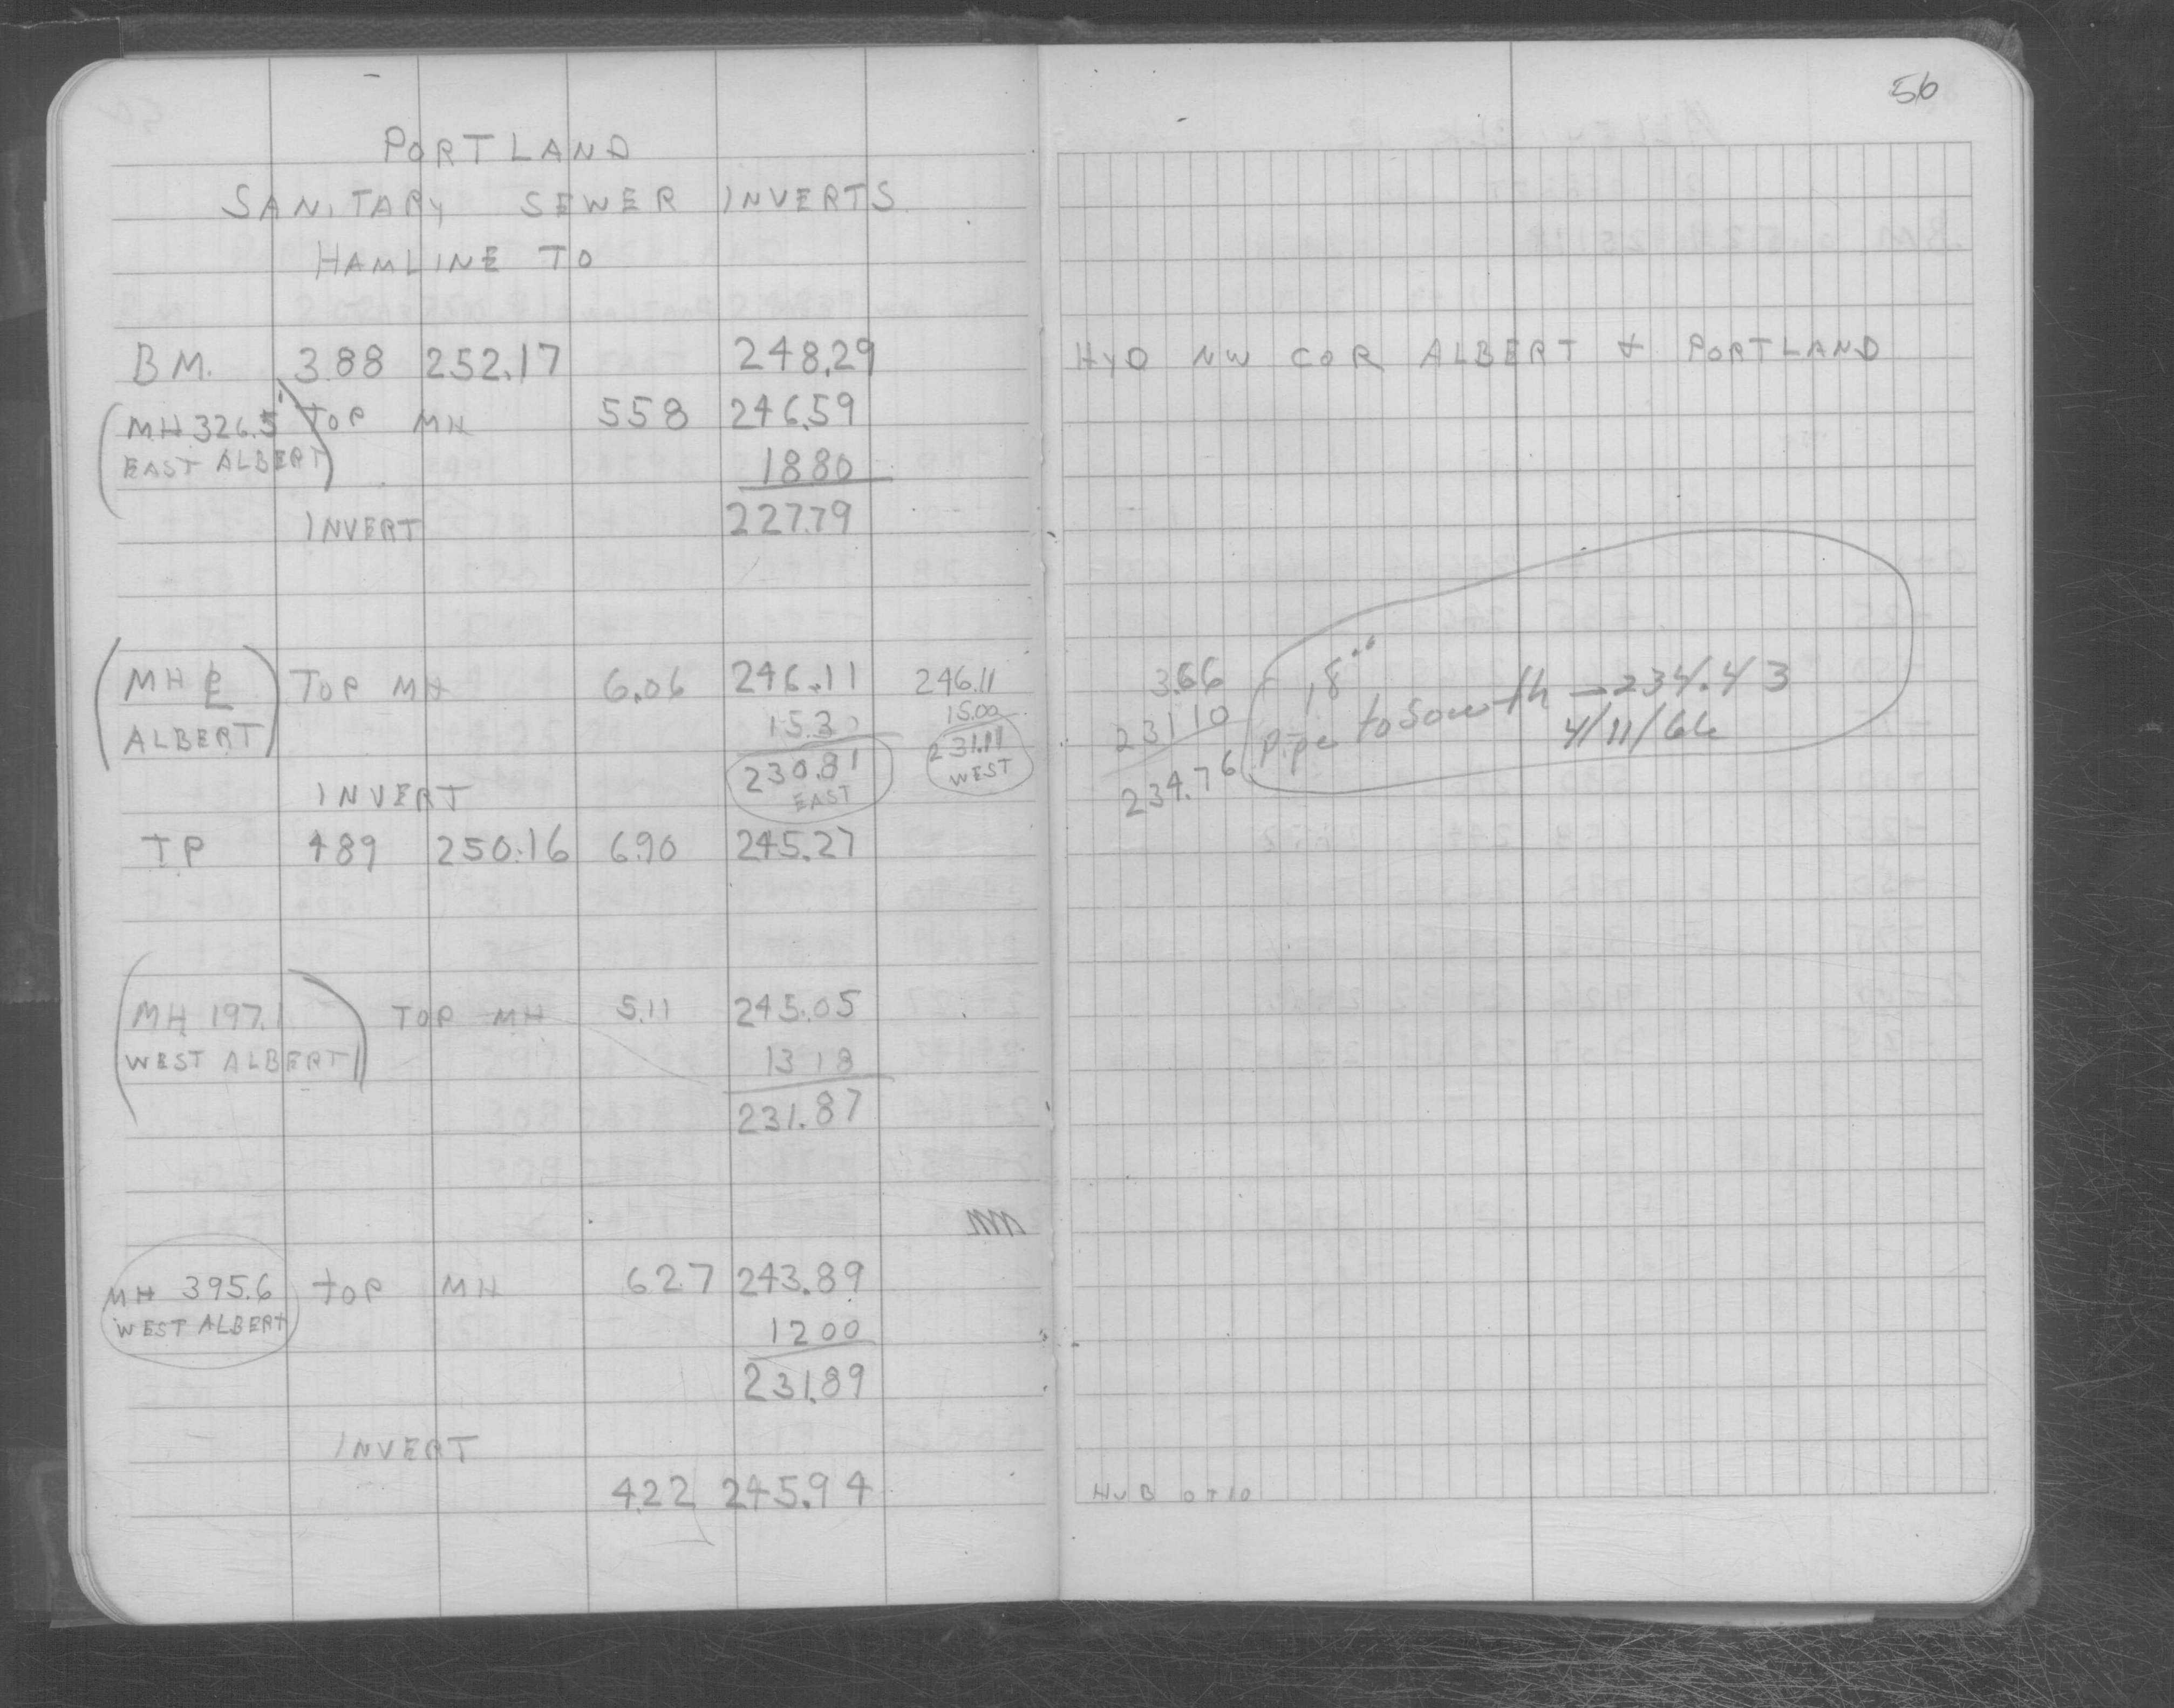 56
PORTLAND
SANITARY SEWER INVERTS
HAMLINE TO
BM. 3.88 252.17 248.29 HYD NW COR ALBERT & PORTLAND
(MH 326.5' TOP MH 558 246.59
EAST ALBERT) 1880
INVERT 227.79
(MH ℄ TOP MH 6.06 246.11 246.11 3.66 18" pipe to South - 234.43
ALBERT) 15.30 15.00 231 10 4/11/66
230.81 231.11 234.76
INVERT EAST WEST
TP 489 250.16 6.90 245.27
(MH 197.1 TOP MH 5.11 245.05
WEST ALBERT) 13 18
231.87
MH 395.6 TOP MH 6 2.7 243.89
WEST ALBERT 1200
231.89
INVERT
4.22 245.94 HUB 0+10